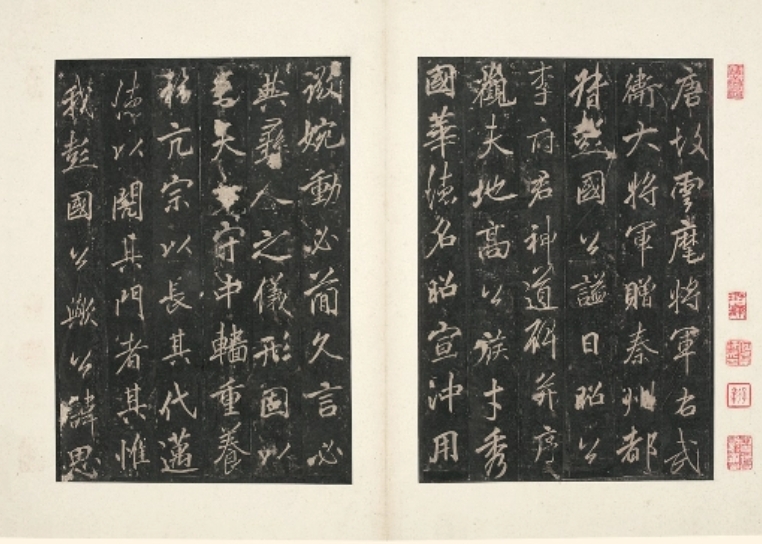 唐故雲麾將軍右武
衛大將軍贈秦州都
督彭國公謚曰昭公
李府君神道碑并序
觀夫地高公族才秀
國華德名昭宣沖用
微婉動必簡久言必
典彝人之儀形固以
守中轖重養
亢宗以長其代邁
德以閥其門者其惟
我彭國公歟公諱思